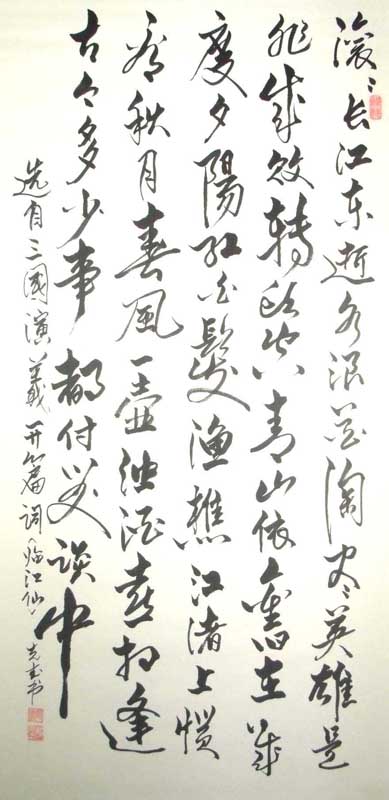 滚〻长江东逝水浪花淘尽英雄是
非成败转头空青山依舊在几
度夕陽红白髮渔樵江渚上惯
看秋月春風一壶浊酒喜相逢
古今多少事都付笑谈中
选自三國演義开篇词《临江仙》书